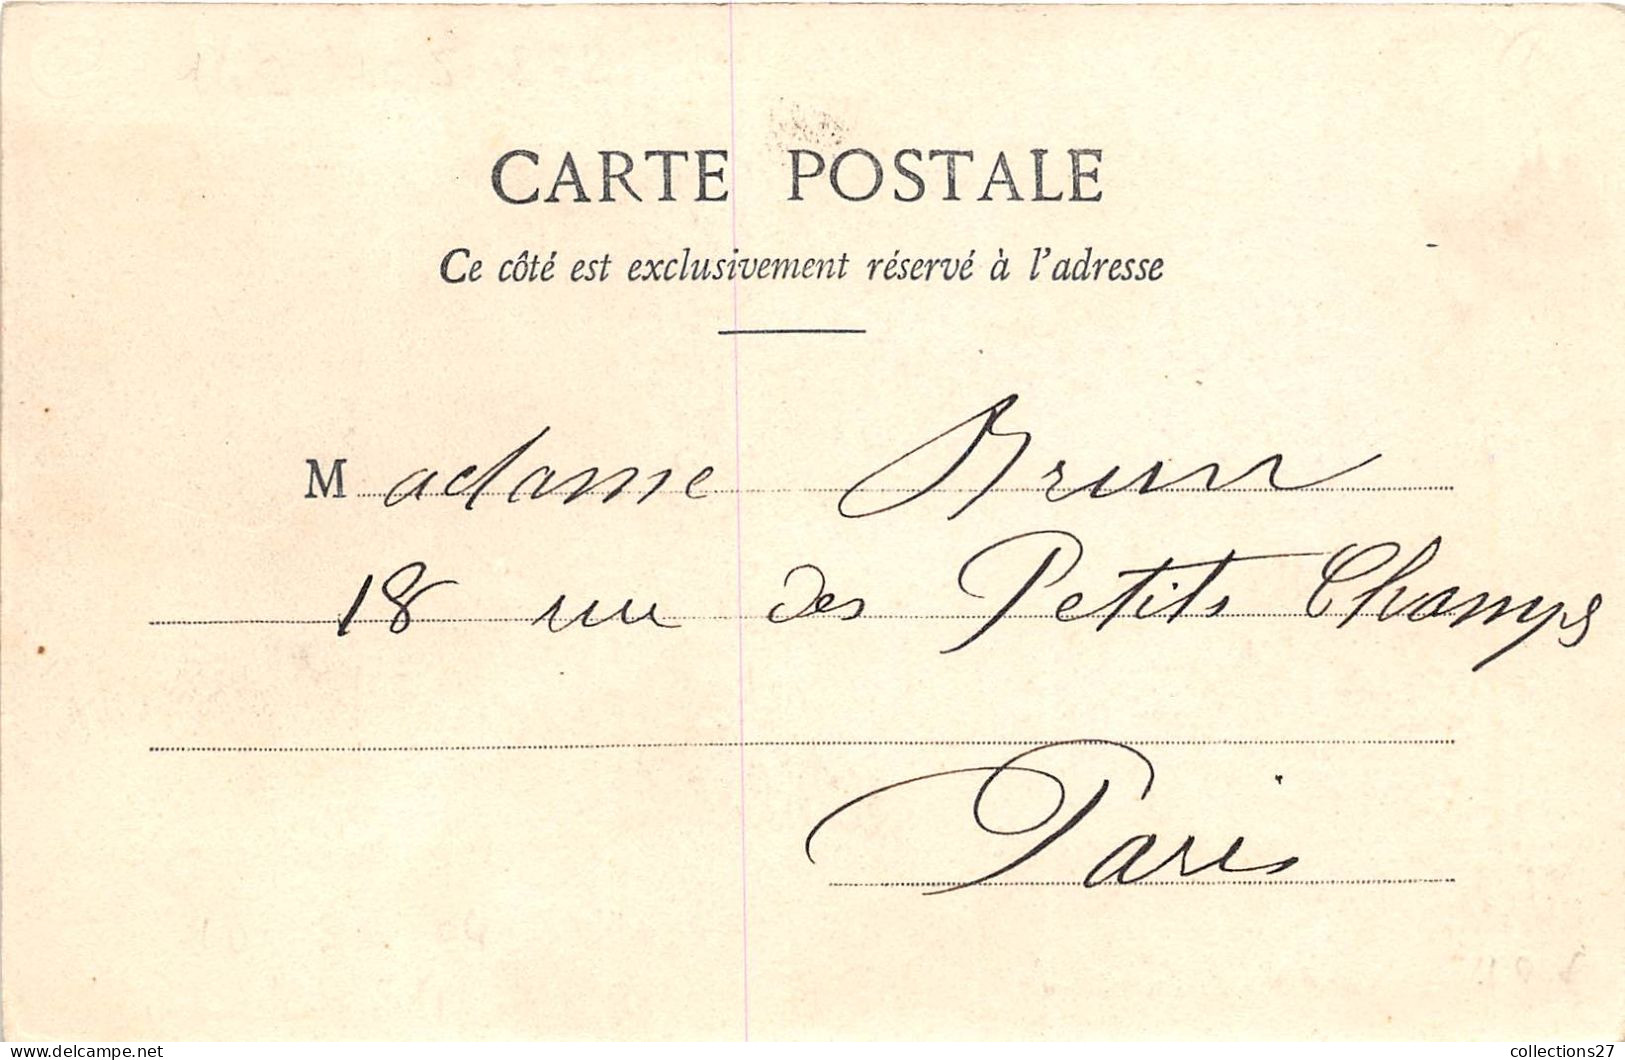 CARTE POSTALE
Ce côté est exclusivement réservé à l'adresse
Madame Brun
18 rue des Petits Champs
Paris
collections27